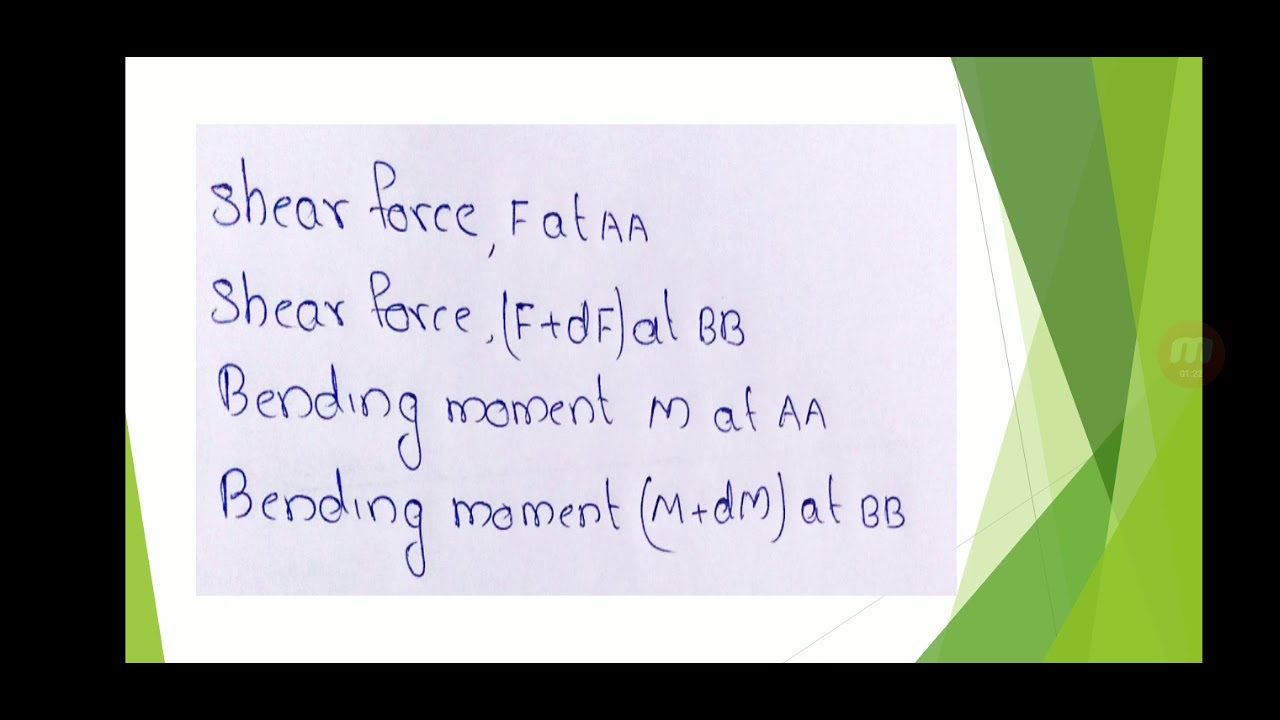 Shear force, F at AA
Shear force, (F+dF) at BB
Bending moment M at AA
Bending moment (M+dM) at BB
01:22